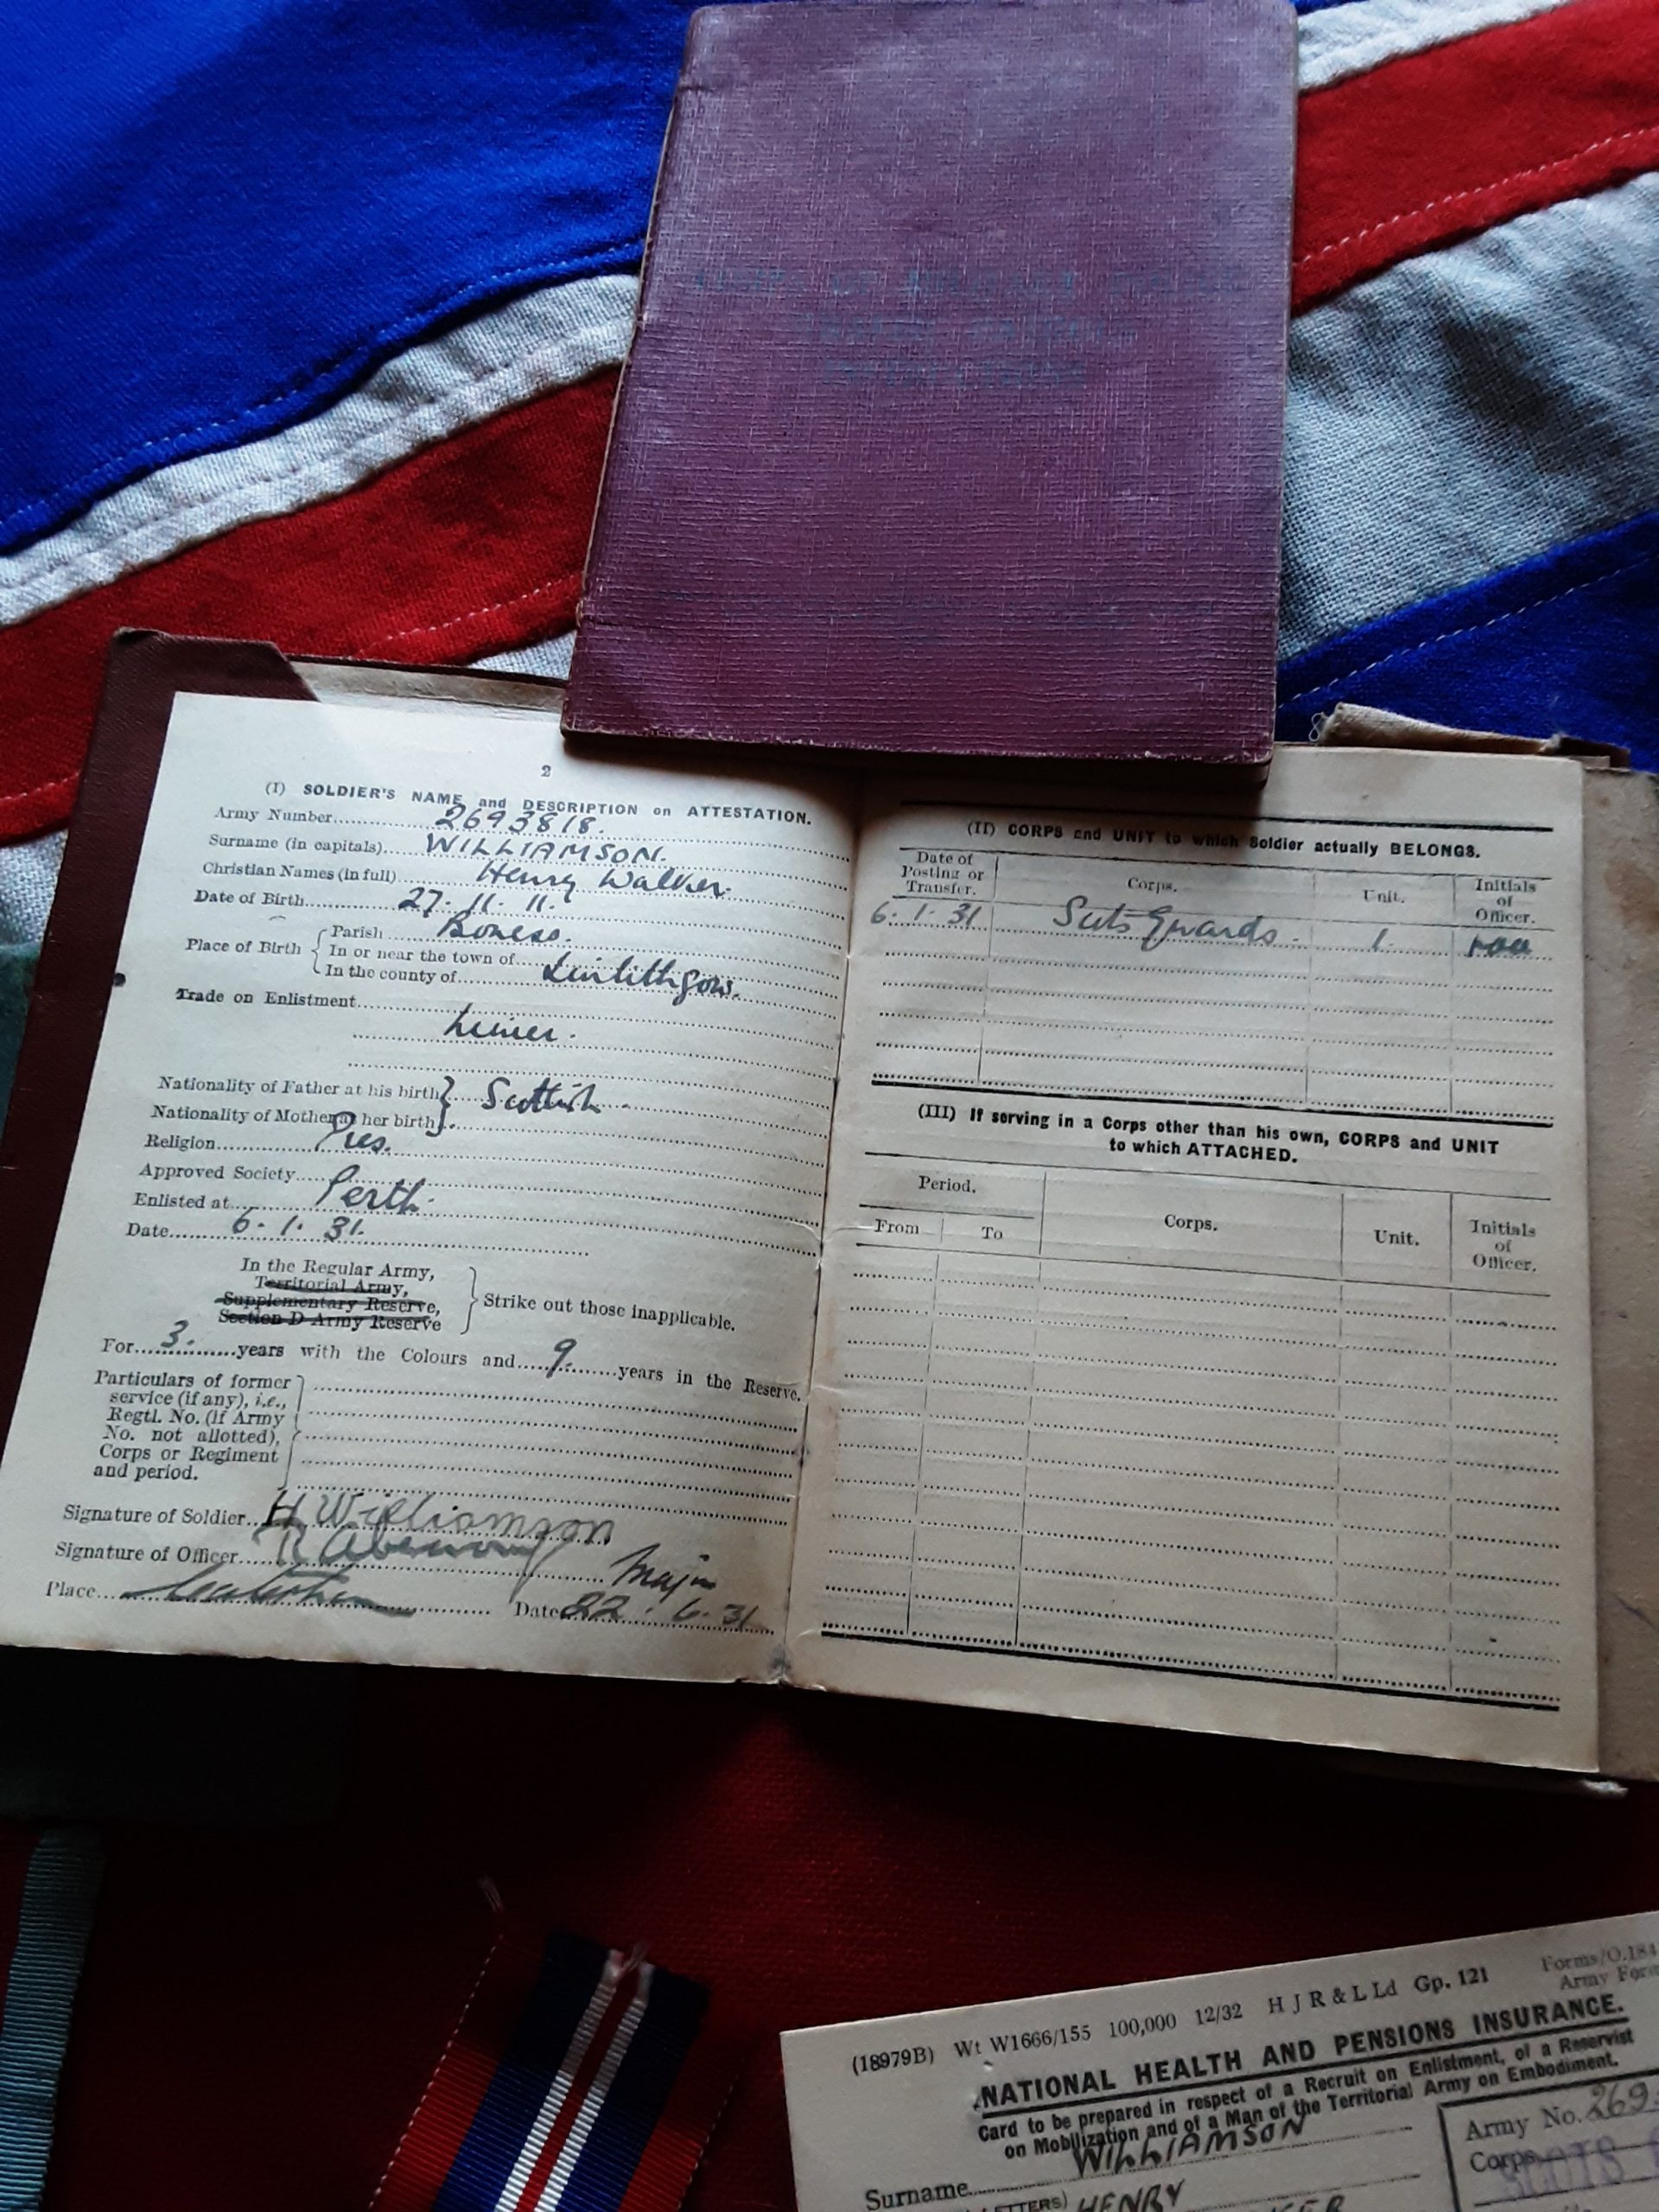 2
(I) SOLDIER'S NAME and DESCRIPTION on ATTESTATION.
Army Number 2693818.
Surname (in capitals) WILLIAMSON.
Christian Names (in full) Henry Walker.
Date of Birth 27. 11. 11.
Place of Birth
Parish Boness.
In or near the town of
In the county of Linlithgow.
Trade on Enlistment
Nationality of Father at his birth
Scottish
Nationality of Mother at her birth
Religion Pres.
Approved Society
Enlisted at Perth.
Date 6. 1. 31.
In the Regular Army,
Territorial Army,
Supplementary Reserve,
Section D Army Reserve
Strike out those inapplicable.
For 3. years with the Colours and 9. years in the Reserve.
Particulars of former
service (if any), i.e.,
Regtl. No. (if Army
No. not allotted),
Corps or Regiment
and period.
Signature of Soldier H Williamson
Signature of Officer Major
Place Date 22. 6. 31
(II) CORPS and UNIT to which Soldier actually BELONGS.
Date of Posting or Transfer. Corps. Unit. Initials of Officer.
6. 1. 31 Scots Guards. 1.
(III) If serving in a Corps other than his own, CORPS and UNIT
to which ATTACHED.
Period. Corps. Unit. Initials of Officer.
From To
(18979B) Wt W1666/155 100,000 12/32 H J R & L Ld Gp. 121
Forms/O.184
Army Form
NATIONAL HEALTH AND PENSIONS INSURANCE.
Card to be prepared in respect of a Recruit on Enlistment, of a Reservist
on Mobilization and of a Man of the Territorial Army on Embodiment.
Surname WILLIAMSON
Army No. 269
Corps SCOTS
LETTERS) HENRY